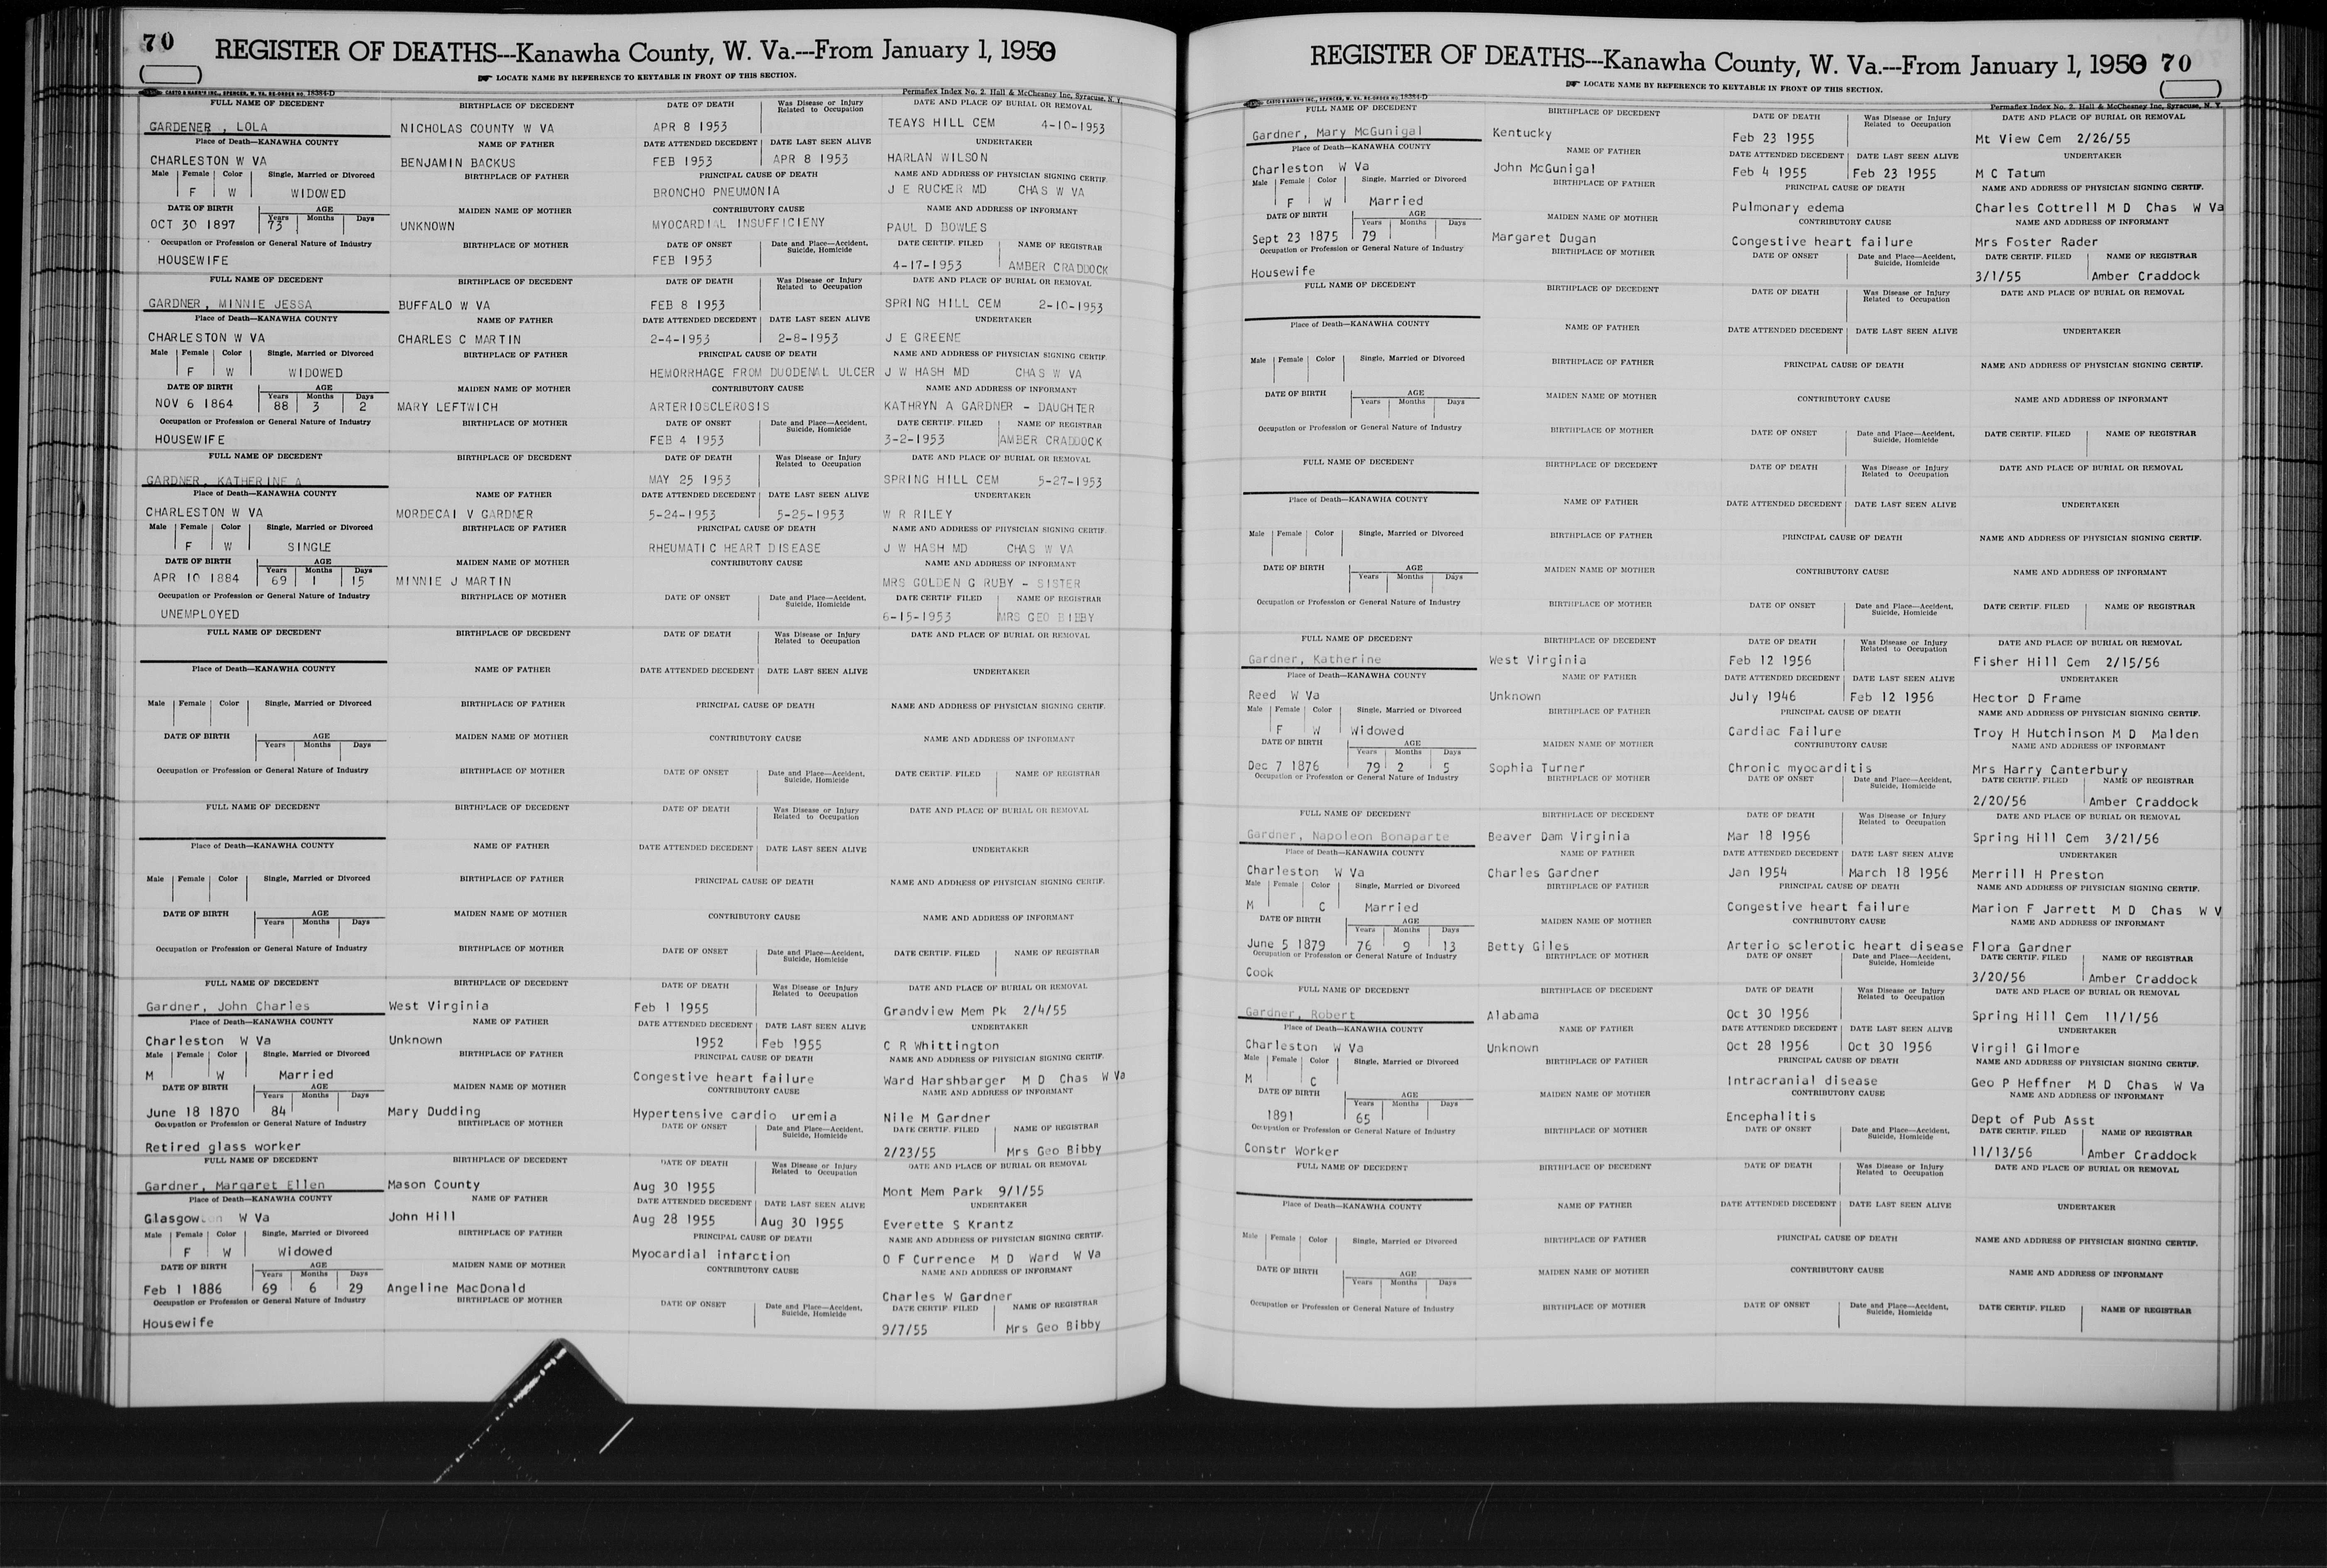 70
REGISTER OF DEATHS---Kanawha County, W. Va.---From January 1, 1950
LOCATE NAME BY REFERENCE TO KEYTABLE IN FRONT OF THIS SECTION.
CASTO & HARRIS INC., SPENCER, W. VA. RE-ORDER NO. 18384-D
Permaflex Index No. 2. Hall & McChesney Inc, Syracuse, N. Y.
FULL NAME OF DECEDENT BIRTHPLACE OF DECEDENT DATE OF DEATH Was Disease or Injury Related to Occupation DATE AND PLACE OF BURIAL OR REMOVAL
GARDENER , LOLA NICHOLAS COUNTY W VA APR 8 1953 TEAYS HILL CEM 4-10-1953
Place of Death—KANAWHA COUNTY NAME OF FATHER DATE ATTENDED DECEDENT DATE LAST SEEN ALIVE UNDERTAKER
CHARLESTON W VA BENJAMIN BACKUS FEB 1953 APR 8 1953 HARLAN WILSON
Male Female Color Single, Married or Divorced BIRTHPLACE OF FATHER PRINCIPAL CAUSE OF DEATH NAME AND ADDRESS OF PHYSICIAN SIGNING CERTIF.
F W WIDOWED BRONCHO PNEUMONIA J E RUCKER MD CHAS W VA
DATE OF BIRTH AGE Years Months Days MAIDEN NAME OF MOTHER CONTRIBUTORY CAUSE NAME AND ADDRESS OF INFORMANT
OCT 30 1897 73 UNKNOWN MYOCARDIAL INSUFFICIENY PAUL D BOWLES
Occupation or Profession or General Nature of Industry BIRTHPLACE OF MOTHER DATE OF ONSET Date and Place—Accident, Suicide, Homicide DATE CERTIF. FILED NAME OF REGISTRAR
HOUSEWIFE FEB 1953 4-17-1953 AMBER CRADDOCK
FULL NAME OF DECEDENT BIRTHPLACE OF DECEDENT DATE OF DEATH Was Disease or Injury Related to Occupation DATE AND PLACE OF BURIAL OR REMOVAL
GARDNER, MINNIE JESSA BUFFALO W VA FEB 8 1953 SPRING HILL CEM 2-10-1953
Place of Death—KANAWHA COUNTY NAME OF FATHER DATE ATTENDED DECEDENT DATE LAST SEEN ALIVE UNDERTAKER
CHARLESTON W VA CHARLES C MARTIN 2-4-1953 2-8-1953 J E GREENE
Male Female Color Single, Married or Divorced BIRTHPLACE OF FATHER PRINCIPAL CAUSE OF DEATH NAME AND ADDRESS OF PHYSICIAN SIGNING CERTIF.
F W WIDOWED HEMORRHAGE FROM DUODENAL ULCER J W HASH MD CHAS W VA
DATE OF BIRTH AGE Years Months Days MAIDEN NAME OF MOTHER CONTRIBUTORY CAUSE NAME AND ADDRESS OF INFORMANT
NOV 6 1864 88 3 2 MARY LEFTWICH ARTERIOSCLEROSIS KATHRYN A GARDNER - DAUGHTER
Occupation or Profession or General Nature of Industry BIRTHPLACE OF MOTHER DATE OF ONSET Date and Place—Accident, Suicide, Homicide DATE CERTIF. FILED NAME OF REGISTRAR
HOUSEWIFE FEB 4 1953 3-2-1953 AMBER CRADDOCK
FULL NAME OF DECEDENT BIRTHPLACE OF DECEDENT DATE OF DEATH Was Disease or Injury Related to Occupation DATE AND PLACE OF BURIAL OR REMOVAL
GARDNER, KATHERINE A MAY 25 1953 SPRING HILL CEM 5-27-1953
Place of Death—KANAWHA COUNTY NAME OF FATHER DATE ATTENDED DECEDENT DATE LAST SEEN ALIVE UNDERTAKER
CHARLESTON W VA MORDECAI V GARDNER 5-24-1953 5-25-1953 W R RILEY
Male Female Color Single, Married or Divorced BIRTHPLACE OF FATHER PRINCIPAL CAUSE OF DEATH NAME AND ADDRESS OF PHYSICIAN SIGNING CERTIF.
F W SINGLE RHEUMATIC HEART DISEASE J W HASH MD CHAS W VA
DATE OF BIRTH AGE Years Months Days MAIDEN NAME OF MOTHER CONTRIBUTORY CAUSE NAME AND ADDRESS OF INFORMANT
APR 10 1884 69 1 15 MINNIE J MARTIN MRS GOLDEN G RUBY - SISTER
Occupation or Profession or General Nature of Industry BIRTHPLACE OF MOTHER DATE OF ONSET Date and Place—Accident, Suicide, Homicide DATE CERTIF FILED NAME OF REGISTRAR
UNEMPLOYED 6-15-1953 MRS GEO BIBBY
FULL NAME OF DECEDENT BIRTHPLACE OF DECEDENT DATE OF DEATH Was Disease or Injury Related to Occupation DATE AND PLACE OF BURIAL OR REMOVAL
Place of Death—KANAWHA COUNTY NAME OF FATHER DATE ATTENDED DECEDENT DATE LAST SEEN ALIVE UNDERTAKER
Male Female Color Single, Married or Divorced BIRTHPLACE OF FATHER PRINCIPAL CAUSE OF DEATH NAME AND ADDRESS OF PHYSICIAN SIGNING CERTIF.
DATE OF BIRTH AGE Years Months Days MAIDEN NAME OF MOTHER CONTRIBUTORY CAUSE NAME AND ADDRESS OF INFORMANT
Occupation or Profession or General Nature of Industry BIRTHPLACE OF MOTHER DATE OF ONSET Date and Place—Accident, Suicide, Homicide DATE CERTIF. FILED NAME OF REGISTRAR
FULL NAME OF DECEDENT BIRTHPLACE OF DECEDENT DATE OF DEATH Was Disease or Injury Related to Occupation DATE AND PLACE OF BURIAL OR REMOVAL
Place of Death—KANAWHA COUNTY NAME OF FATHER DATE ATTENDED DECEDENT DATE LAST SEEN ALIVE UNDERTAKER
Male Female Color Single, Married or Divorced BIRTHPLACE OF FATHER PRINCIPAL CAUSE OF DEATH NAME AND ADDRESS OF PHYSICIAN SIGNING CERTIF.
DATE OF BIRTH AGE Years Months Days MAIDEN NAME OF MOTHER CONTRIBUTORY CAUSE NAME AND ADDRESS OF INFORMANT
Occupation or Profession or General Nature of Industry BIRTHPLACE OF MOTHER DATE OF ONSET Date and Place—Accident, Suicide, Homicide DATE CERTIF. FILED NAME OF REGISTRAR
FULL NAME OF DECEDENT BIRTHPLACE OF DECEDENT DATE OF DEATH Was Disease or Injury Related to Occupation DATE AND PLACE OF BURIAL OR REMOVAL
Gardner, John Charles West Virginia Feb 1 1955 Grandview Mem Pk 2/4/55
Place of Death—KANAWHA COUNTY NAME OF FATHER DATE ATTENDED DECEDENT DATE LAST SEEN ALIVE UNDERTAKER
Charleston W Va Unknown 1952 Feb 1955 C R Whittington
Male Female Color Single, Married or Divorced BIRTHPLACE OF FATHER PRINCIPAL CAUSE OF DEATH NAME AND ADDRESS OF PHYSICIAN SIGNING CERTIF.
M W Married Congestive heart failure Ward Harshbarger M D Chas W Va
DATE OF BIRTH AGE Years Months Days MAIDEN NAME OF MOTHER CONTRIBUTORY CAUSE NAME AND ADDRESS OF INFORMANT
June 18 1870 84 Mary Dudding Hypertensive cardio uremia Nile M Gardner
Occupation or Profession or General Nature of Industry BIRTHPLACE OF MOTHER DATE OF ONSET Date and Place—Accident, Suicide, Homicide DATE CERTIF. FILED NAME OF REGISTRAR
Retired glass worker 2/23/55 Mrs Geo Bibby
FULL NAME OF DECEDENT BIRTHPLACE OF DECEDENT DATE OF DEATH Was Disease or Injury Related to Occupation DATE AND PLACE OF BURIAL OR REMOVAL
Gardner, Margaret Ellen Mason County Aug 30 1955 Mont Mem Park 9/1/55
Place of Death—KANAWHA COUNTY NAME OF FATHER DATE ATTENDED DECEDENT DATE LAST SEEN ALIVE UNDERTAKER
Glasgow W Va John Hill Aug 28 1955 Aug 30 1955 Everette S Krantz
Male Female Color Single, Married or Divorced BIRTHPLACE OF FATHER PRINCIPAL CAUSE OF DEATH NAME AND ADDRESS OF PHYSICIAN SIGNING CERTIF.
F W Widowed Myocardial intarction O F Currence M D Ward W Va
DATE OF BIRTH AGE Years Months Days MAIDEN NAME OF MOTHER CONTRIBUTORY CAUSE NAME AND ADDRESS OF INFORMANT
Feb 1 1886 69 6 29 Angeline MacDonald Charles W Gardner
Occupation or Profession or General Nature of Industry BIRTHPLACE OF MOTHER DATE OF ONSET Date and Place—Accident, Suicide, Homicide DATE CERTIF. FILED NAME OF REGISTRAR
Housewife 9/7/55 Mrs Geo Bibby
REGISTER OF DEATHS---Kanawha County, W. Va.---From January 1, 1950 70
LOCATE NAME BY REFERENCE TO KEYTABLE IN FRONT OF THIS SECTION.
CASTO & HARRIS INC., SPENCER, W. VA. RE-ORDER NO. 18384-D
Permaflex Index No. 2. Hall & McChesney Inc, Syracuse, N. Y.
FULL NAME OF DECEDENT BIRTHPLACE OF DECEDENT DATE OF DEATH Was Disease or Injury Related to Occupation DATE AND PLACE OF BURIAL OR REMOVAL
Gardner, Mary McGunigal Kentucky Feb 23 1955 Mt View Cem 2/26/55
Place of Death—KANAWHA COUNTY NAME OF FATHER DATE ATTENDED DECEDENT DATE LAST SEEN ALIVE UNDERTAKER
Charleston W Va John McGunigal Feb 4 1955 Feb 23 1955 M C Tatum
Male Female Color Single, Married or Divorced BIRTHPLACE OF FATHER PRINCIPAL CAUSE OF DEATH NAME AND ADDRESS OF PHYSICIAN SIGNING CERTIF.
F W Married Pulmonary edema Charles Cottrell M D Chas W Va
DATE OF BIRTH AGE Years Months Days MAIDEN NAME OF MOTHER CONTRIBUTORY CAUSE NAME AND ADDRESS OF INFORMANT
Sept 23 1875 79 Margaret Dugan Congestive heart failure Mrs Foster Rader
Occupation or Profession or General Nature of Industry BIRTHPLACE OF MOTHER DATE OF ONSET Date and Place—Accident, Suicide, Homicide DATE CERTIF. FILED NAME OF REGISTRAR
Housewife 3/1/55 Amber Craddock
FULL NAME OF DECEDENT BIRTHPLACE OF DECEDENT DATE OF DEATH Was Disease or Injury Related to Occupation DATE AND PLACE OF BURIAL OR REMOVAL
Place of Death—KANAWHA COUNTY NAME OF FATHER DATE ATTENDED DECEDENT DATE LAST SEEN ALIVE UNDERTAKER
Male Female Color Single, Married or Divorced BIRTHPLACE OF FATHER PRINCIPAL CAUSE OF DEATH NAME AND ADDRESS OF PHYSICIAN SIGNING CERTIF.
DATE OF BIRTH AGE Years Months Days MAIDEN NAME OF MOTHER CONTRIBUTORY CAUSE NAME AND ADDRESS OF INFORMANT
Occupation or Profession or General Nature of Industry BIRTHPLACE OF MOTHER DATE OF ONSET Date and Place—Accident, Suicide, Homicide DATE CERTIF. FILED NAME OF REGISTRAR
FULL NAME OF DECEDENT BIRTHPLACE OF DECEDENT DATE OF DEATH Was Disease or Injury Related to Occupation DATE AND PLACE OF BURIAL OR REMOVAL
Place of Death—KANAWHA COUNTY NAME OF FATHER DATE ATTENDED DECEDENT DATE LAST SEEN ALIVE UNDERTAKER
Male Female Color Single, Married or Divorced BIRTHPLACE OF FATHER PRINCIPAL CAUSE OF DEATH NAME AND ADDRESS OF PHYSICIAN SIGNING CERTIF.
DATE OF BIRTH AGE Years Months Days MAIDEN NAME OF MOTHER CONTRIBUTORY CAUSE NAME AND ADDRESS OF INFORMANT
Occupation or Profession or General Nature of Industry BIRTHPLACE OF MOTHER DATE OF ONSET Date and Place—Accident, Suicide, Homicide DATE CERTIF. FILED NAME OF REGISTRAR
FULL NAME OF DECEDENT BIRTHPLACE OF DECEDENT DATE OF DEATH Was Disease or Injury Related to Occupation DATE AND PLACE OF BURIAL OR REMOVAL
Gardner, Katherine West Virginia Feb 12 1956 Fisher Hill Cem 2/15/56
Place of Death—KANAWHA COUNTY NAME OF FATHER DATE ATTENDED DECEDENT DATE LAST SEEN ALIVE UNDERTAKER
Reed W Va Unknown July 1946 Feb 12 1956 Hector D Frame
Male Female Color Single, Married or Divorced BIRTHPLACE OF FATHER PRINCIPAL CAUSE OF DEATH NAME AND ADDRESS OF PHYSICIAN SIGNING CERTIF.
F W Widowed Cardiac Failure Troy H Hutchinson M D Malden
DATE OF BIRTH AGE Years Months Days MAIDEN NAME OF MOTHER CONTRIBUTORY CAUSE NAME AND ADDRESS OF INFORMANT
Dec 7 1876 79 2 5 Sophia Turner Chronic myocarditis Mrs Harry Canterbury
Occupation or Profession or General Nature of Industry BIRTHPLACE OF MOTHER DATE OF ONSET Date and Place—Accident, Suicide, Homicide DATE CERTIF. FILED NAME OF REGISTRAR
2/20/56 Amber Craddock
FULL NAME OF DECEDENT BIRTHPLACE OF DECEDENT DATE OF DEATH Was Disease or Injury Related to Occupation DATE AND PLACE OF BURIAL OR REMOVAL
Gardner, Napoleon Bonaparte Beaver Dam Virginia Mar 18 1956 Spring Hill Cem 3/21/56
Place of Death—KANAWHA COUNTY NAME OF FATHER DATE ATTENDED DECEDENT DATE LAST SEEN ALIVE UNDERTAKER
Charleston W Va Charles Gardner Jan 1954 March 18 1956 Merrill H Preston
Male Female Color Single, Married or Divorced BIRTHPLACE OF FATHER PRINCIPAL CAUSE OF DEATH NAME AND ADDRESS OF PHYSICIAN SIGNING CERTIF.
M C Married Congestive heart failure Marion F Jarrett M D Chas W V
DATE OF BIRTH AGE Years Months Days MAIDEN NAME OF MOTHER CONTRIBUTORY CAUSE NAME AND ADDRESS OF INFORMANT
June 5 1879 76 9 13 Betty Giles Arterio sclerotic heart disease Flora Gardner
Occupation or Profession or General Nature of Industry BIRTHPLACE OF MOTHER DATE OF ONSET Date and Place—Accident, Suicide, Homicide DATE CERTIF. FILED NAME OF REGISTRAR
Cook 3/20/56 Amber Craddock
FULL NAME OF DECEDENT BIRTHPLACE OF DECEDENT DATE OF DEATH Was Disease or Injury Related to Occupation DATE AND PLACE OF BURIAL OR REMOVAL
Gardner, Robert Alabama Oct 30 1956 Spring Hill Cem 11/1/56
Place of Death—KANAWHA COUNTY NAME OF FATHER DATE ATTENDED DECEDENT DATE LAST SEEN ALIVE UNDERTAKER
Charleston W Va Unknown Oct 28 1956 Oct 30 1956 Virgil Gilmore
Male Female Color Single, Married or Divorced BIRTHPLACE OF FATHER PRINCIPAL CAUSE OF DEATH NAME AND ADDRESS OF PHYSICIAN SIGNING CERTIF.
M C Intracranial disease Geo P Heffner M D Chas W Va
DATE OF BIRTH AGE Years Months Days MAIDEN NAME OF MOTHER CONTRIBUTORY CAUSE NAME AND ADDRESS OF INFORMANT
1891 65 Encephalitis Dept of Pub Asst
Occupation or Profession or General Nature of Industry BIRTHPLACE OF MOTHER DATE OF ONSET Date and Place—Accident, Suicide, Homicide DATE CERTIF. FILED NAME OF REGISTRAR
Constr Worker 11/13/56 Amber Craddock
FULL NAME OF DECEDENT BIRTHPLACE OF DECEDENT DATE OF DEATH Was Disease or Injury Related to Occupation DATE AND PLACE OF BURIAL OR REMOVAL
Place of Death—KANAWHA COUNTY NAME OF FATHER DATE ATTENDED DECEDENT DATE LAST SEEN ALIVE UNDERTAKER
Male Female Color Single, Married or Divorced BIRTHPLACE OF FATHER PRINCIPAL CAUSE OF DEATH NAME AND ADDRESS OF PHYSICIAN SIGNING CERTIF.
DATE OF BIRTH AGE Years Months Days MAIDEN NAME OF MOTHER CONTRIBUTORY CAUSE NAME AND ADDRESS OF INFORMANT
Occupation or Profession or General Nature of Industry BIRTHPLACE OF MOTHER DATE OF ONSET Date and Place—Accident, Suicide, Homicide DATE CERTIF. FILED NAME OF REGISTRAR